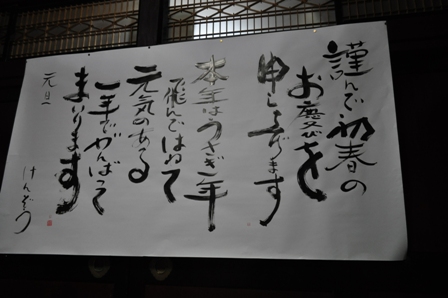 謹んで初春の
お慶びを
申し上げます
本年はうさぎ年
飛んではねて
元気のある
一年でがんばって
まいります
元旦
けんぞう